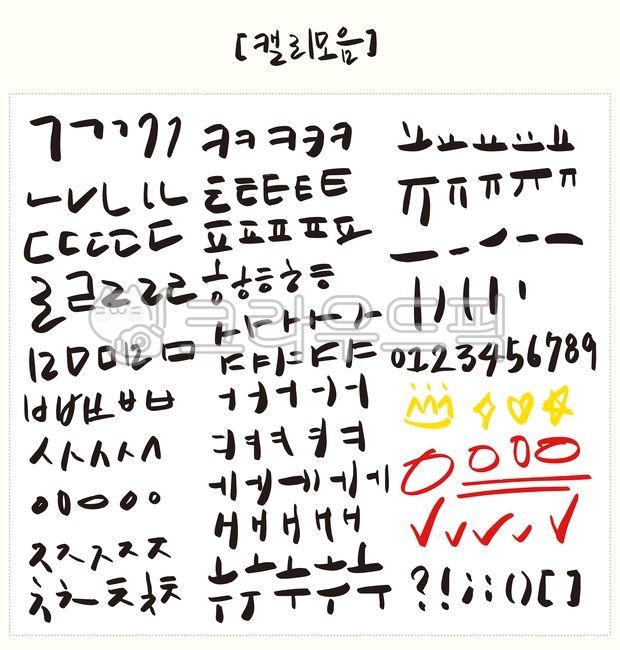 [캘리모음]
ㄱㄱㄱㄱㄱ
ㄴㄴㄴㄴㄴ
ㄷㄷㄷㄷㄷ
ㄹㄹㄹㄹㄹ
ㅁㅁㅁㅁㅁ
ㅂㅂㅂㅂㅂ
ㅅㅅㅅㅅㅅ
ㅇㅇㅇㅇㅇ
ㅈㅈㅈㅈㅈ
ㅊㅊㅊㅊㅊ
ㅋㅋㅋㅋㅋ
ㅌㅌㅌㅌㅌ
ㅍㅍㅍㅍㅍ
ㅎㅎㅎㅎㅎ
ㅏㅏㅏㅏㅏ
ㅑㅑㅑㅑㅑ
ㅓㅓㅓㅓㅓ
ㅕㅕㅕㅕㅕ
ㅔㅔㅔㅔㅔ
ㅐㅐㅐㅐㅐ
ㅗㅗㅗㅗㅗ
ㅜㅜㅜㅜㅜ
ㅛㅛㅛㅛㅛ
ㅠㅠㅠㅠㅠ
ㅡㅡㅡㅡㅡ
ㅣㅣㅣㅣㅣ
0123456789
?!;:()[]
크라우드픽